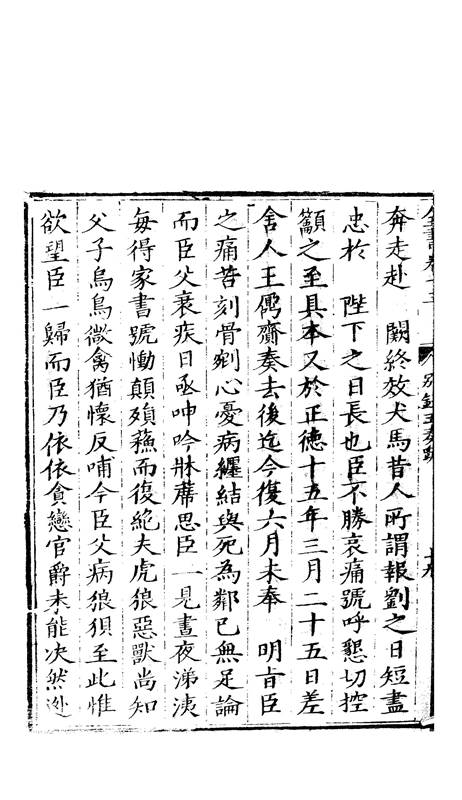 奔走赴　闕終效犬馬昔人所謂報劉之日短盡
忠於　陛下之日長也臣不勝哀痛號呼懇切控
籲之至具本又於正德十五年三月二十五日差
舍人王鼐齎奏去後迄今復六月未奉　明旨臣
之痛苦刻骨剜心憂病纏結與死為鄰已無足論
而臣父衰疾日亟呻吟牀蓆思臣一見晝夜涕洟
每得家書號慟顛殞蘇而復絕夫虎狼惡獸尚知
父子烏鳥微禽猶懷反哺今臣父病狼狽至此惟
欲望臣一歸而臣乃依依貪戀官爵未能决然逊